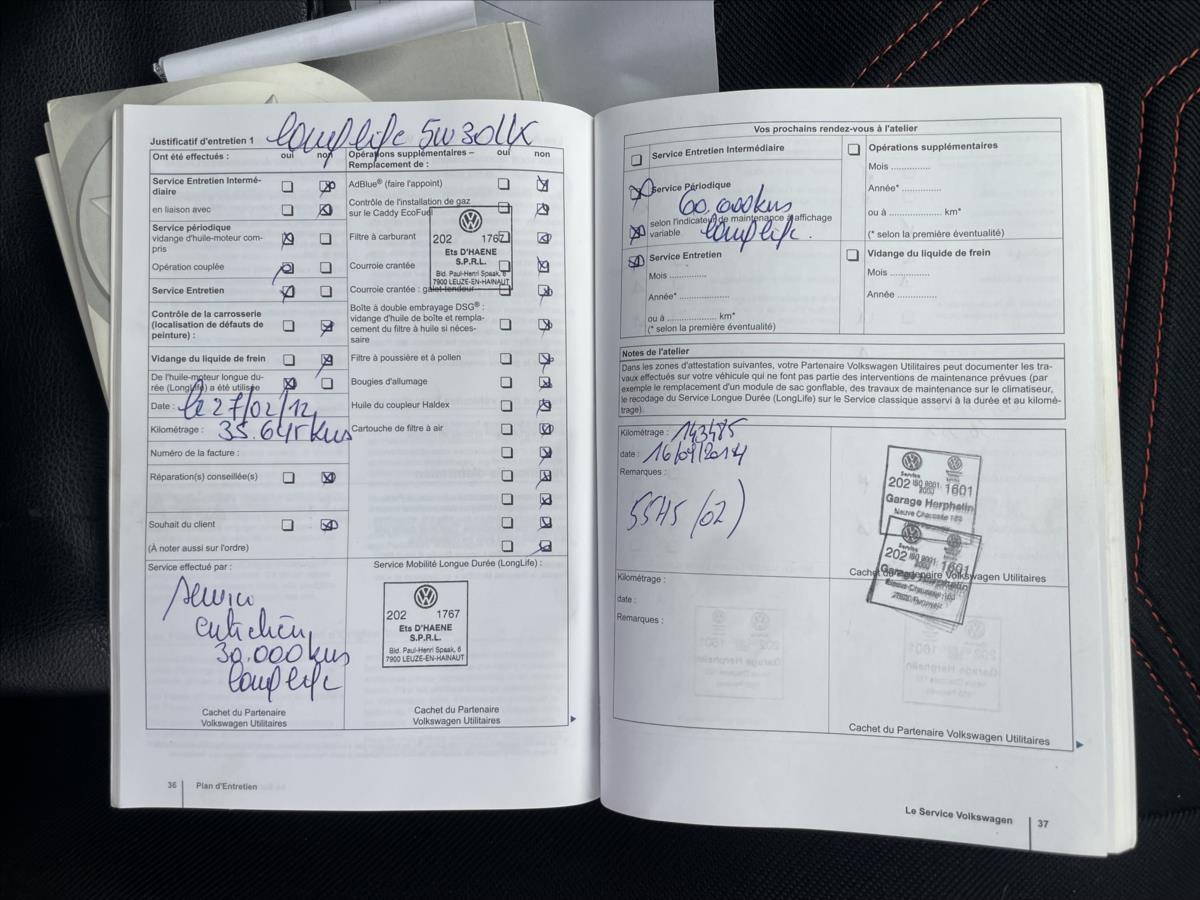 Justificatif d'entretien 1
Ont été effectués : oui non
Service Entretien Intermé-
diaire
en liaison avec
Service périodique
vidange d'huile-moteur com-
pris
Opération couplée
Service Entretien
Contrôle de la carrosserie
(localisation de défauts de
peinture) :
Vidange du liquide de frein
De l'huile-moteur longue du-
rée (LongLife) a été utilisée
Date : le 27/02/12
Kilométrage :
Numéro de la facture :
Réparation(s) conseillée(s)
Souhait du client
(À noter aussi sur l'ordre)
Service effectué par :
Service
entretien
30.000 kms
long life
Cachet du Partenaire
Volkswagen Utilitaires
Opérations supplémentaires – oui non
Remplacement de :
AdBlue® (faire l'appoint)
Contrôle de l'installation de gaz
sur le Caddy EcoFuel
Filtre à carburant
Courroie crantée
Courroie crantée : galet tendeur
202 1767
Ets D'HAENE
S.P.R.L.
Bld. Paul-Henri Spaak, 6
7900 LEUZE-EN-HAINAUT
Boîte à double embrayage DSG® :
vidange d'huile de boîte et rempla-
cement du filtre à huile si néces-
saire
Filtre à poussière et à pollen
Bougies d'allumage
Huile du coupleur Haldex
Cartouche de filtre à air
Service Mobilité Longue Durée (LongLife) :
202 1767
Ets D'HAENE
S.P.R.L.
Bld. Paul-Henri Spaak, 6
7900 LEUZE-EN-HAINAUT
Cachet du Partenaire
Volkswagen Utilitaires
36 Plan d'Entretien
Vos prochains rendez-vous à l'atelier
Service Entretien Intermédiaire
Service Périodique
60.000 kms
selon l'indicateur de maintenance à affichage
variable
long life
Service Entretien
Mois ..............
Année* ..............
ou à .................... km*
(* selon la première éventualité)
Opérations supplémentaires
Mois ..............
Année* ..............
ou à .................... km*
(* selon la première éventualité)
Vidange du liquide de frein
Mois ..............
Année ..............
Notes de l'atelier
Dans les zones d'attestation suivantes, votre Partenaire Volkswagen Utilitaires peut documenter les tra-
vaux effectués sur votre véhicule qui ne font pas partie des interventions de maintenance prévues (par
exemple le remplacement d'un module de sac gonflable, des travaux de maintenance sur le climatiseur,
le recodage du Service Longue Durée (LongLife) sur le Service classique asservi à la durée et au kilomé-
trage).
Kilométrage : 143485
date :
Remarques :
55H5 (02)
Service
202 ISO 9001: 1601
2000
Garage Herphelin
Neuve Chaussée 189
Service
202 ISO 9001: 1601
Garage Herphelin
Cachet du Partenaire Volkswagen Utilitaires
Kilométrage :
date :
Remarques :
Cachet du Partenaire Volkswagen Utilitaires
Le Service Volkswagen 37